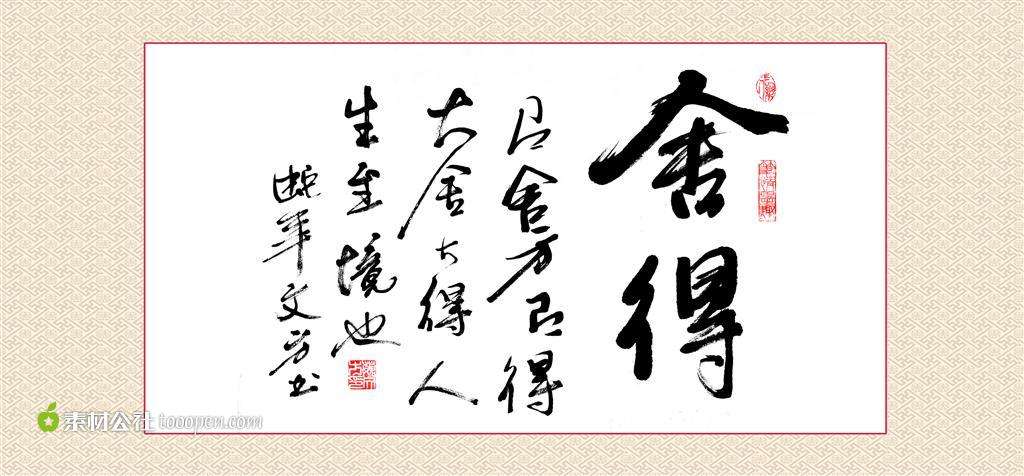 舍得
品舍方品得
大舍大得人
生至境也
文芳书
素材公社 tooopen.com